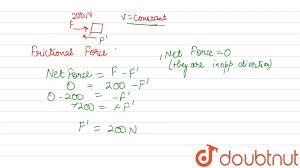 200N
F
F'
V = Constant
Frictional Force
, Net Force = 0
(They are in opp direction)
Net Force = F - F'
0 = 200 - F'
0 - 200 = - F'
-200 = - F'
F' = 200 N
doubtnut